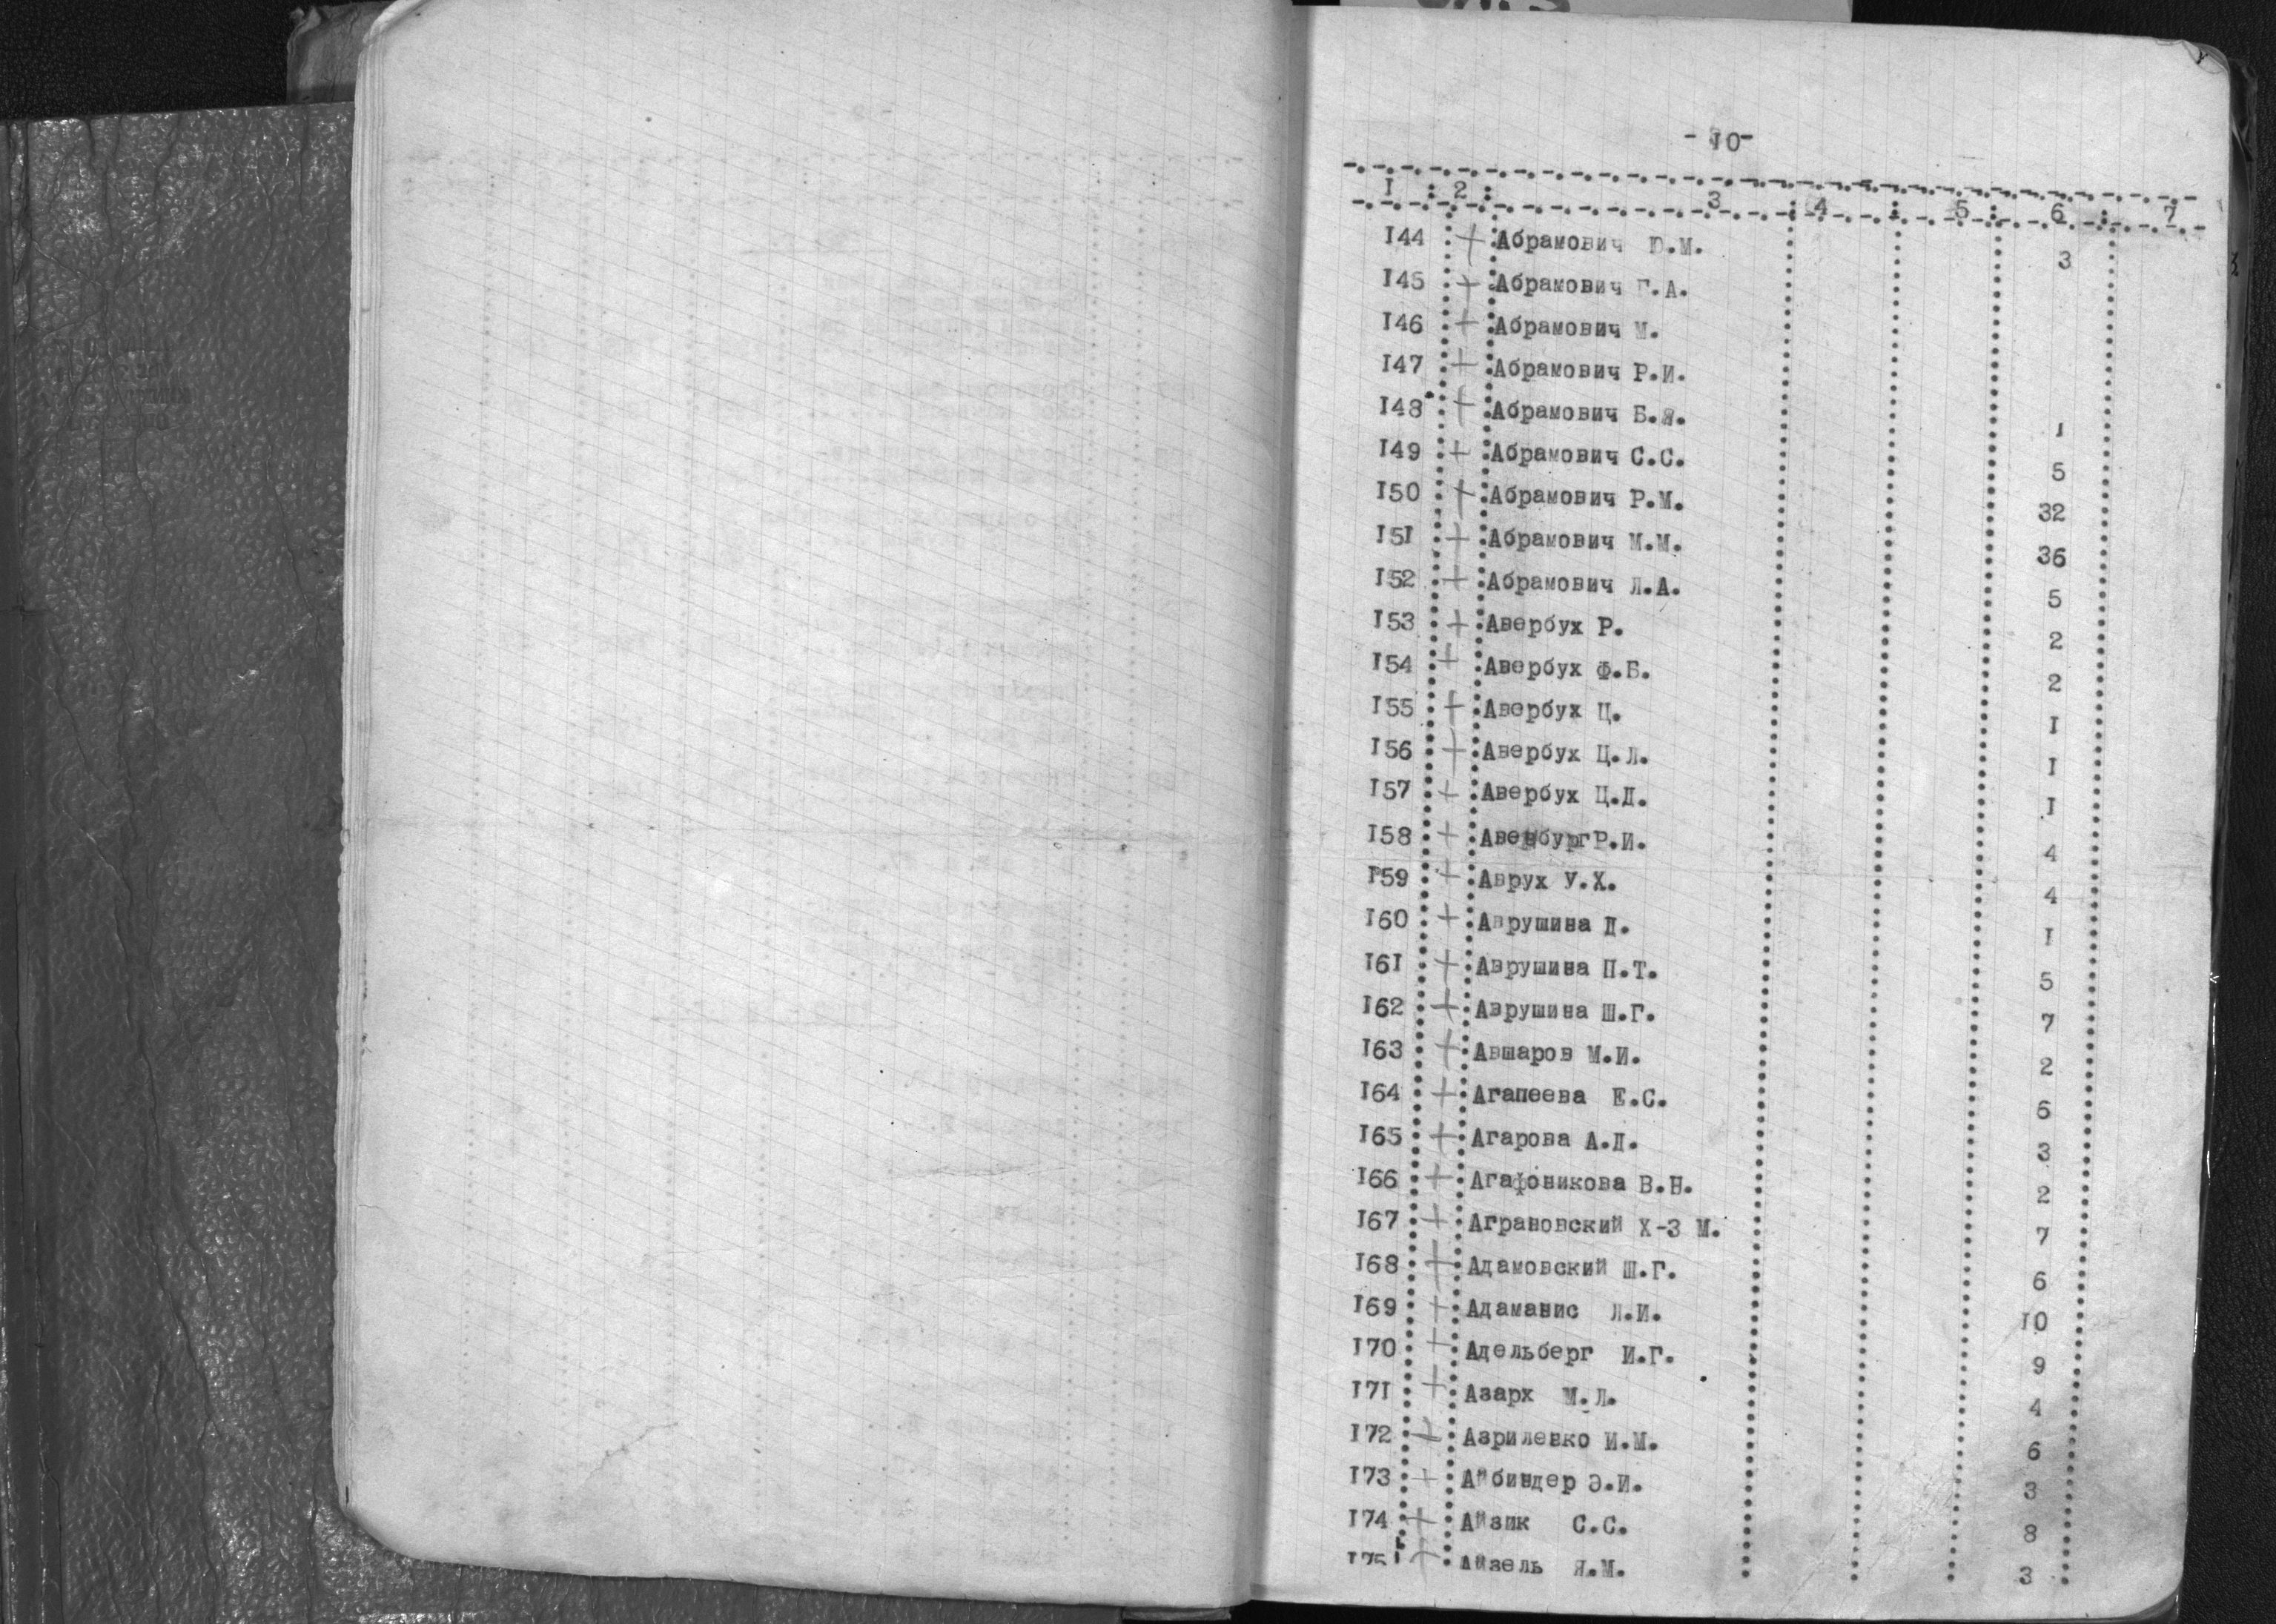 -10-
I : 2 : 3 : 4 : 5 : 6 : 7
I44 + Абрамович Ю.М. 3
I45 + Абрамович Г.А.
I46 + Абрамович М.
I47 + Абрамович Р.И.
I48 + Абрамович Б.Я. I
I49 + Абрамович С.С. 5
I50 + Абрамович Р.М. 32
I5I + Абрамович М.М. 36
I52 + Абрамович Л.А. 5
I53 + Авербух Р. 2
I54 + Авербух Ф.Б. 2
I55 + Авербух Ц. I
I56 + Авербух Ц.Л. I
I57 + Авербух Ц.Д. I
I58 + Авенбург Р.И. 4
I59 + Аврух У.Х. 4
I60 + Аврушина Д. I
I6I + Аврушина П.Т. 5
I62 + Аврушина Ш.Г. 7
I63 + Авшаров М.И. 2
I64 + Агапеева Е.С. 6
I65 + Агарова А.Д. 3
I66 + Агафоникова В.Н. 2
I67 + Аграновский Х-З М. 7
I68 + Адамовский Ш.Г. 6
I69 + Адаманис Л.И. I0
I70 + Адельберг И.Г. 9
I7I + Азарх М.Л. 4
I72 + Азриленко И.М. 6
I73 + Айбиндер Э.И. 3
I74 + Айзик С.С. 8
I75 + Айзель Я.М. 3